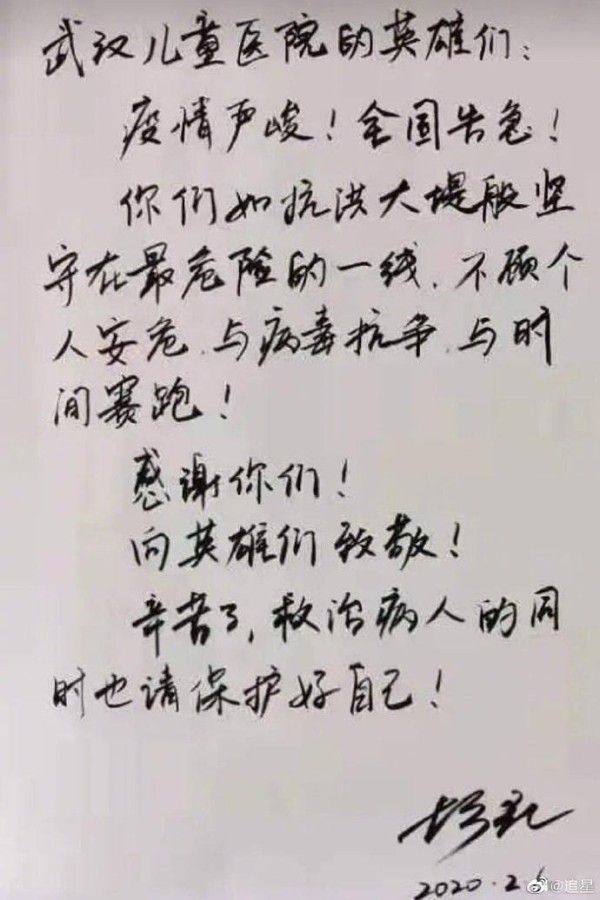 武汉儿童医院的英雄们：
疫情严峻！全国告急！
你们如抗洪大堤般坚
守在最危险的一线，不顾个
人安危，与病毒抗争，与时
间赛跑！
感谢你们！
向英雄们致敬！
辛苦了，救治病人的同
时也请保护好自己！
2020.2.
@追星